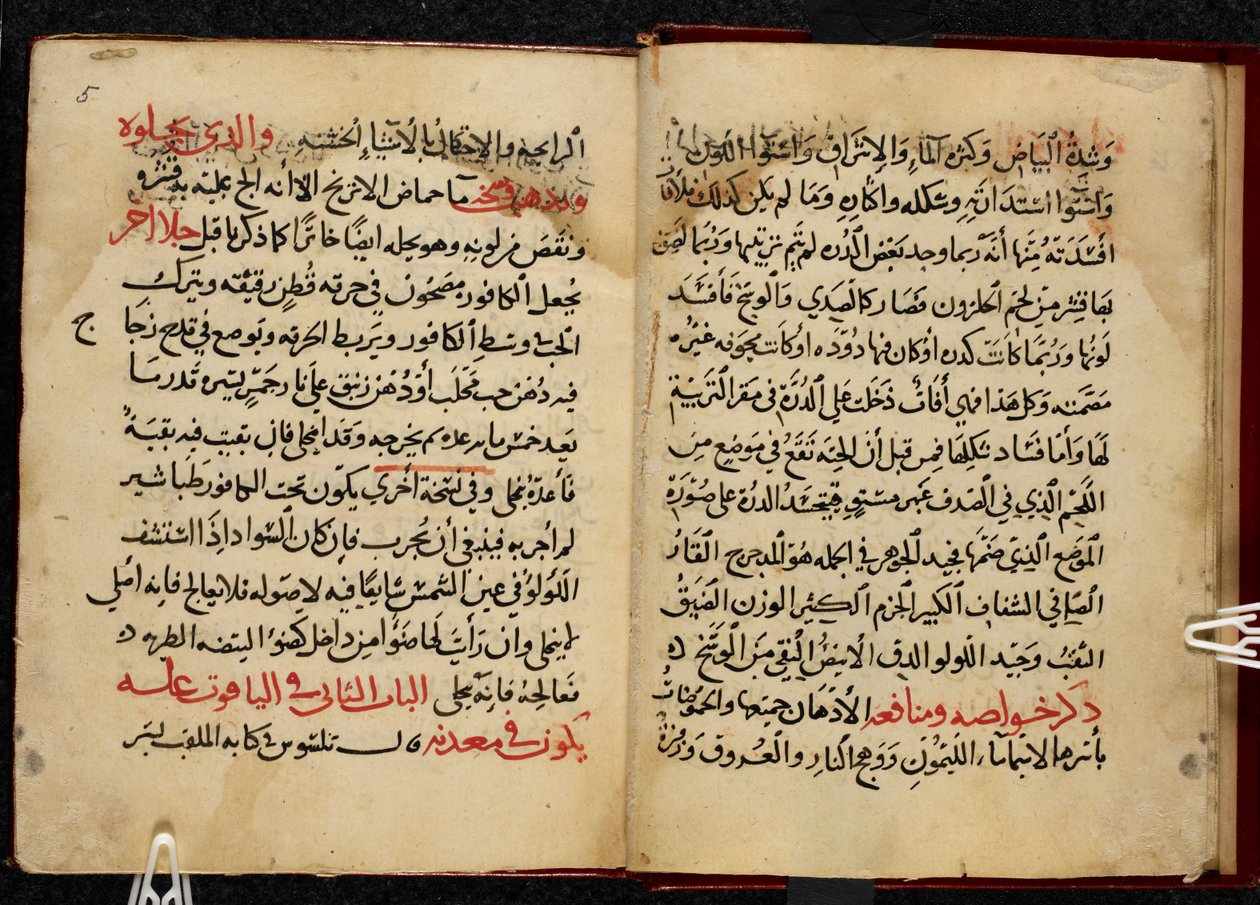 وشدة البياض وكثرة الماء والاشراق واستوآ اللون
واستوآ استدارته وشكله واكانه وما لم يكن كذلك فلآفة
افسدته منها أنه ربما وجد بعض الدره لم تتم تربيتها وربما لصق
بها قشر من لحم الحلزون فصار كالصدي والوسخ فأفسد
لونها وربما كانت كدره أو كان فيها دوده أو كانت مجوفه غير
مصمته وكل هذا فهي أفات دخلت علي الدرة في مقر التربية
لها وأما فساد شكلها فمن قبل أن الحبه تقع في موضع من
اللحم الذي في الصدف غير مستوي فيتجسد الدرة على صورة
الموضع الذي ضمها فجيد الجوهر في الجمله هو المدحرج القار
الصافي الشفاف الكبير الجرم الكثير الوزن الضيق
الثقب وجيد اللولو الدق الابيض النقي من الوسخ
ذكر خواصه ومنافعه الأدهان جميعها والحموضات
بأسرها لا سيما مآء الليمون ووهج النار والعروق وذفرة
5
الرايحه والاحتكاك بالأشياء الخشنه والذي يجلوه
ويذهب وسخه مآ حماض الاترنج الا أنه الج عليه بد قشره
ونقص من لونه وهو يحله ايضا خاثرا كما ذكرنا قبل جلا اخر
يجعل الكافور مصحون في خرقه قطن رقيقه ويترك
الحب في وسط الكافور ويربط الخرقه ويوضع في قدح زجا ج
فيه دهن حب محلب أو دهن زنبق على نار جمر يسيره قدر ما
يعد خمس مايه عده ثم يخرجه وقد انجلى فان بقيت فيه بقية
فأعده ينجلي وفي نسخة أخري يكون تحت الكافور طباشير
لم أجربه فينبغي أن يجرب فان كان السواد اذا استشف
اللولؤ في عين الشمس شايعا فيه لا ضو له فلا يعالج فانه اصلي
لا ينجلي وان رأيت لها ضوا من داخل كضو البيضه الطريه
فعالجه فانه ينجلي الباب الثاني في الياقوت علة
يكون في معدنه قال بلينوس في كتابه الملقب لسر